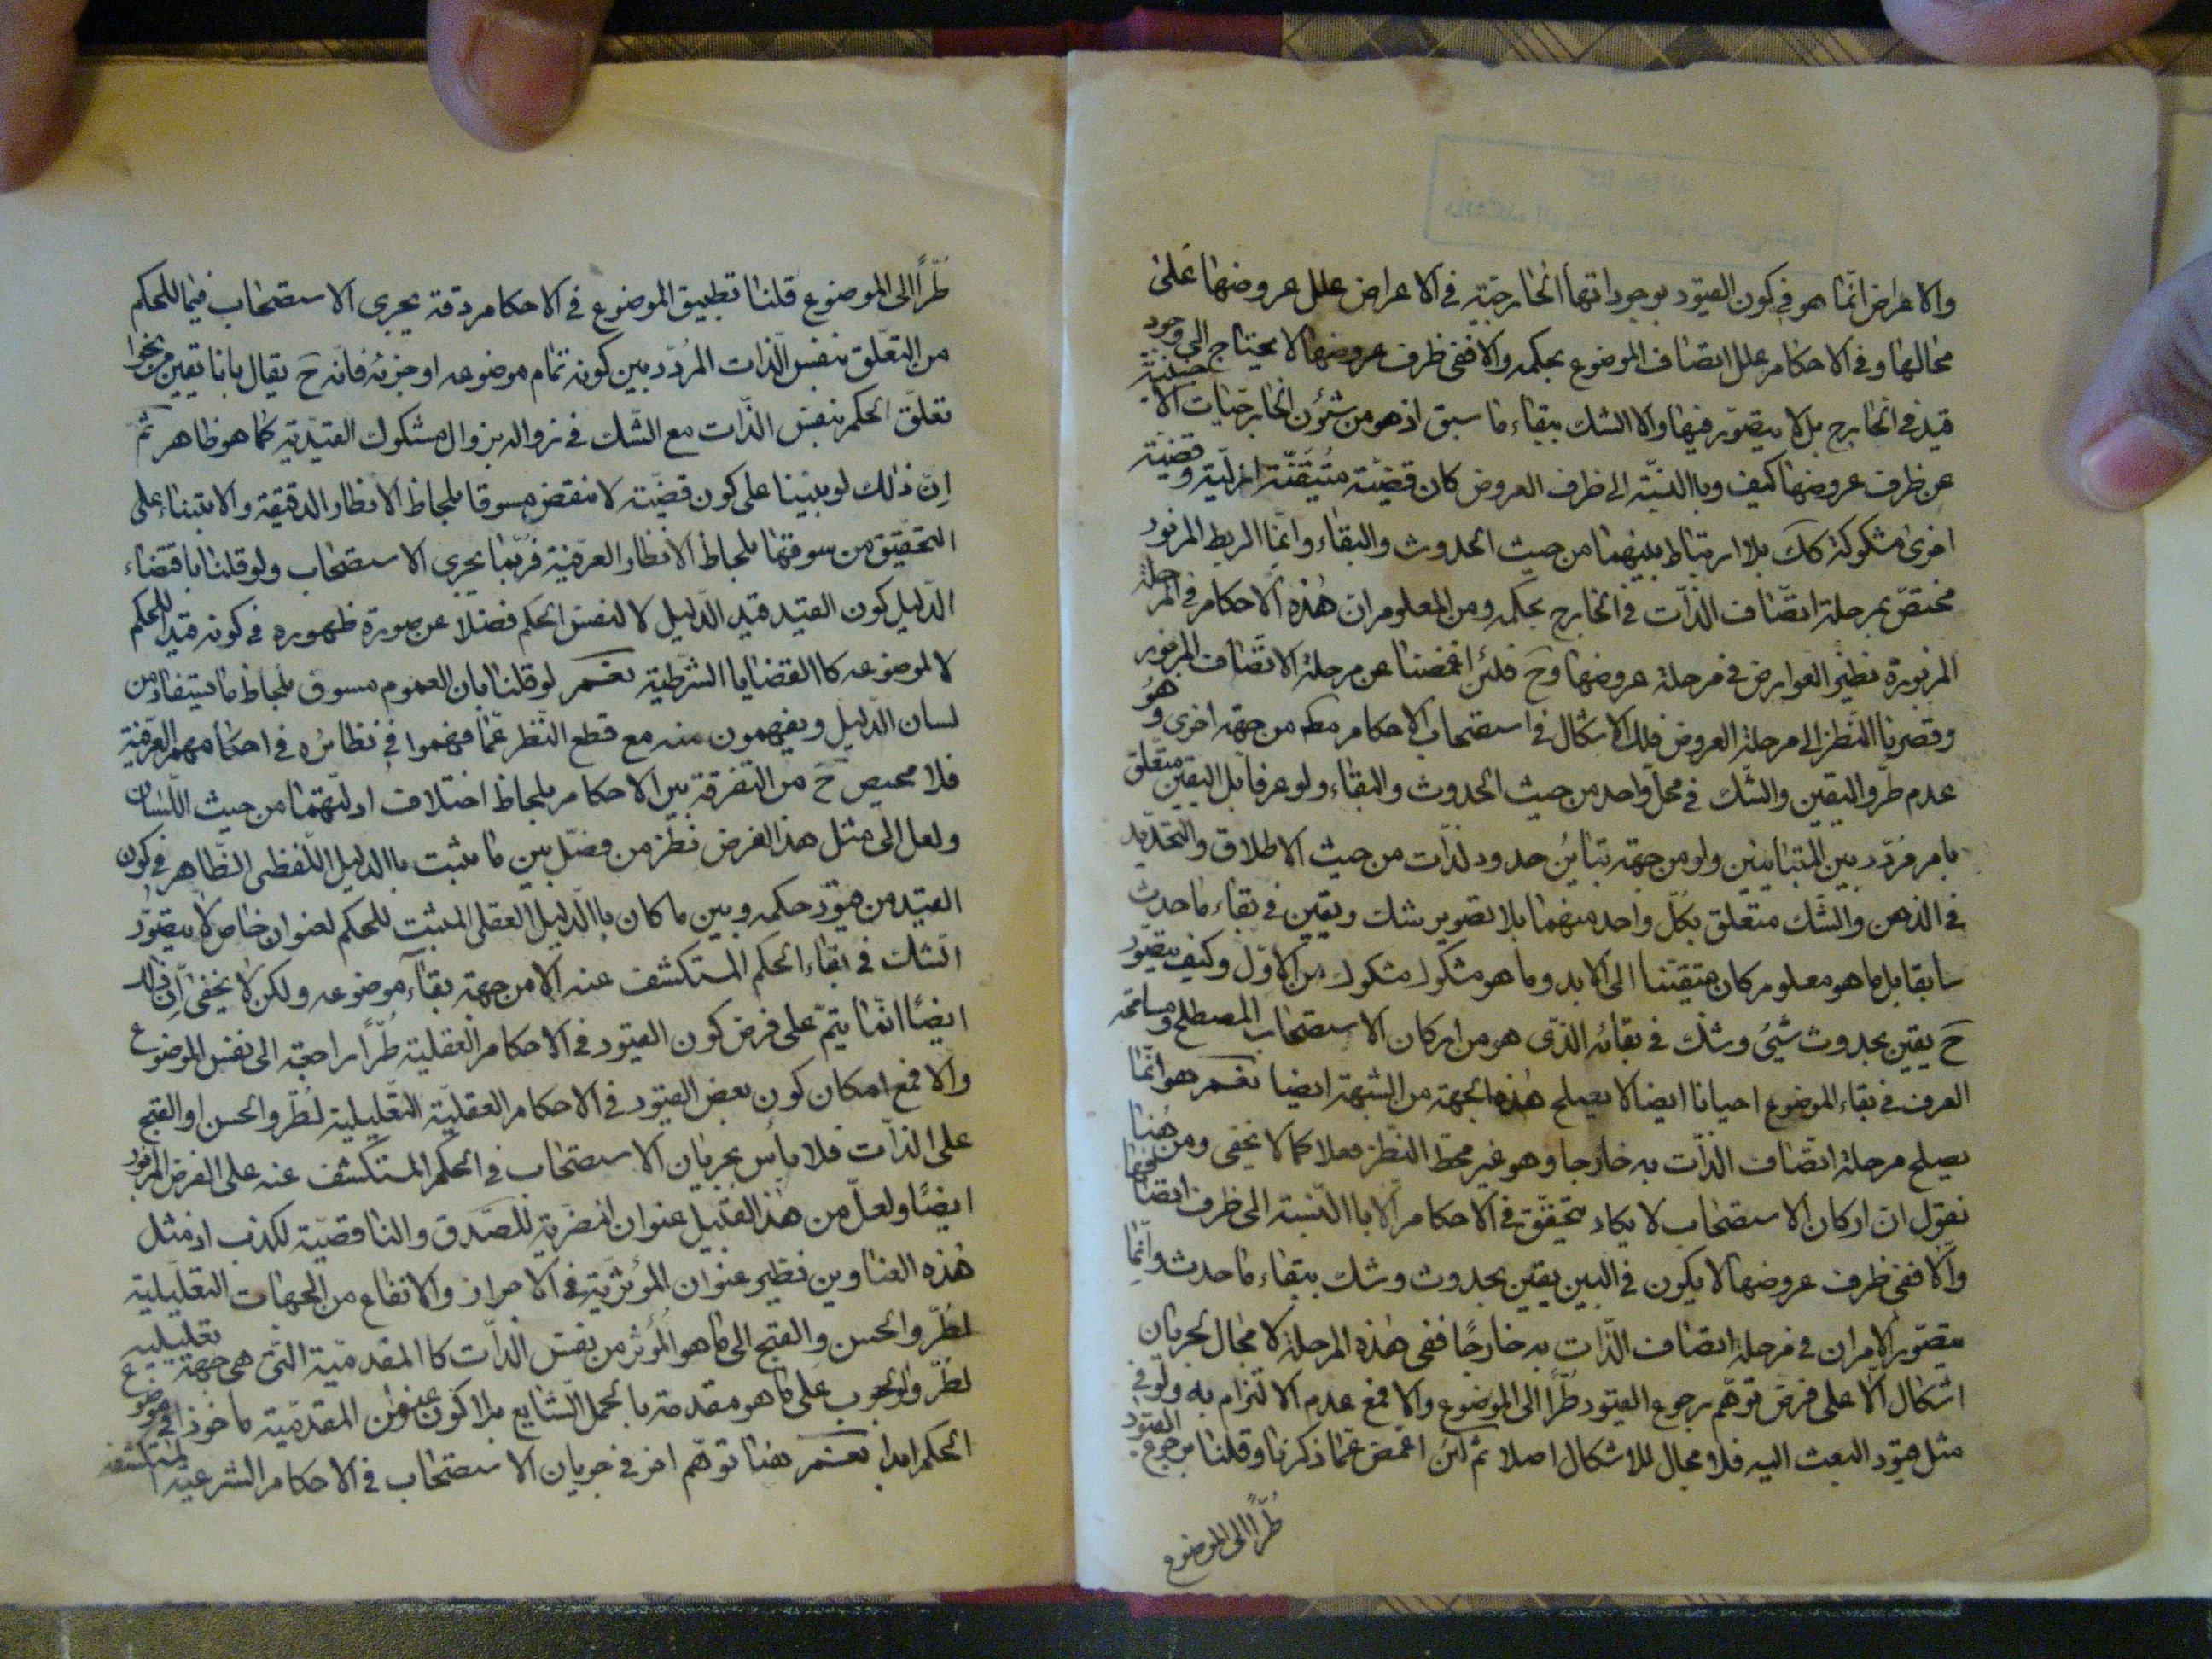 والاعراض انّما هو في كون القيود بوجوداتها الخارجيّة في الاعراض علل عروضها على
محالها وفي الاحكام علل اتصاف الموضوع بحكمه والا ففى ظرف عروضها لا يحتاج الى وجود
قيد في الخارج بل لا يتصوّر فيها والا الشك ببقاء ما سبق اذ هو من شئون الخارجيات الاجنبيّة
عن ظرف عروضها كيف وبا النسبة الى ظرف العروض كان قضيّة متيقّنة ازليّة وقضيّة
اخرى مشكوكة كك بلا ارتباط بينهما من حيث الحدوث والبقاء وانّما الربط المزبور
مختصّ بمرحلة اتصاف الذّات في الخارج بحكمه ومن المعلوم ان هذه الاحكام في المرحلة
المزبورة نظير العوارض في مرحلة عروضها وح فلئن اغمضنا عن مرحلة الاتّصاف المزبور
وقصرنا النّظر الى مرحلة العروض فلك الاشكال في استصحاب الاحكام مطم من جهة اخرى وهو
عدم طرّو اليقين والشّك في محلّ واحد من حيث الحدوث والبقاء ولو عرفا بل اليقين متعلّق
بامر مردّد بين المتباينين ولو من جهة تباين حدود لذّات من حيث الاطلاق والتحديد
في الذهن والشّك متعلق بكلّ واحد منهما بلا تصوير شك ويقين في بقاء ما حدث
سابقا بل ما هو معلوم كان متيقّنا الى الابد وما هو مشكوك مشكوك من الاوّل وكيف يتصوّر
ح يقين بحدوث شيئ وشك في بقائه الذّى هو من اركان الاستصحاب المصطلح ومسامحة
العرف في بقاء الموضوع احيانا ايضا لا يصلح هذه الجهة من الشبهة ايضا نعم هو انّما
يصلح مرحلة اتصاف الذّات به خارجا وهو غير محطّ النّظر فعلا كما لا يخفى ومن هنا
نقول ان اركان الاستصحاب لا يكاد يتحقّق في الاحكام الّا با النّسبة الى ظرف اتصافها
والّا ففى ظرف عروضها لا يكون في البين يقين بحدوث وشك ببقاء ما حدث وانّما
يتصوّر الامران في مرحلة اتصاف الذّات به خارجًا ففى هذه المرحلة لا مجال لجريان
اشكال الّا على فرض توهّم رجوع القيود طُرّاً الى الموضوع والا فمع عدم الالتزام به ولو في
مثل قيود البعث اليه فلا مجال للاشكال اصلا ثمّ لئن اغمض عمّا ذكرنا وقلنا برجوع القيود
طُرّاً الى الموضوع
طُرّاً الى الموضوع قلنا تطبيق الموضوع في الاحكام دقة يجرى الاستصحاب فيما للحكم
من التعلّق بنفس الذّات المُردّد بين كونه تمام موضوعه او جزئه فانّه ح يقال بانا تيقين من نحوا
تعلّق الحكم بنفس الذّات مع الشّك في زواله بزوال مشكوك القيّديّة كما هو ظاهر ثمّ
انّ ذلك لو بنينا على كون قضيّة لا تنقض مسوقا بلحاظ الانظار الدقيقة والا بتناء على
التحقيق من سوقها بلحاظ الانظار العرفيّة فربّما يجرى الاستصحاب ولو قلنا باقتضاء
الدّليل كون القيد قيد الدّليل لا لنفس الحكم فضلا عن صورة ظهوره في كونه قيد للحكم
لا لموضوعه كا القضايا الشّرطيّة نعم لو قلنا بان العموم مسوق بلحاظ ما يستفاد من
لسان الدّليل ويفهمون منه مع قطع النّظر عمّا فهموا في نظائره في احكامهم العرفيّة
فلا محيص ح من التفرقة بين الاحكام بلحاظ اختلاف ادلّتهما من حيث اللّسان
ولعل الى مثل هذا الفرض نظر من فصّل بين ما يثبت با الدليل اللّفظى الظّاهر في كون
القيّد من قيود حكمه وبين ما كان با الدّليل العقلى المثبت للحكم لعنوان خاص لا يتصوّر
الشّك في بقاء الحكم المستكشف عنه الا من جهة بقاء موضوعه ولكن لا يخفى انّ ذلك
ايضًا انّما يتمّ على فرض كون القيود في الاحكام العقلية طُرّاً راجعة الى نفس الموضوع
والّا فمع امكان كون بعض القيود في الاحكام العقليّة التّعليلية لطُرّو الحسن او القبح
على الذات فلا باس بجريان الاستصحاب في الحكم المستكشف عنه على الفرض المزبور
ايضًا ولعلّ من هذا القبيل عنوان المضّريّة للصّدق والنافعيّة لكذب اذ مثل
هذه العناوين نظير عنوان المؤثريّة في الاحراز والانتفاع من الجهات التعليلية
لطُرّو الحسن والقبح الى ما هو المُؤثر من نفس الذّات كا المقدميّة التى هى جهة تعليلية
لطُرّو الوجوب على ما هو مقدمة با لحمل الشّايع بلا كون عنوان المقدميّة ماخوذا في موضوع
الحكم ابدا نعم هنا توهّم اخر في جريان الاستصحاب في الاحكام الشرعية المستكشفه